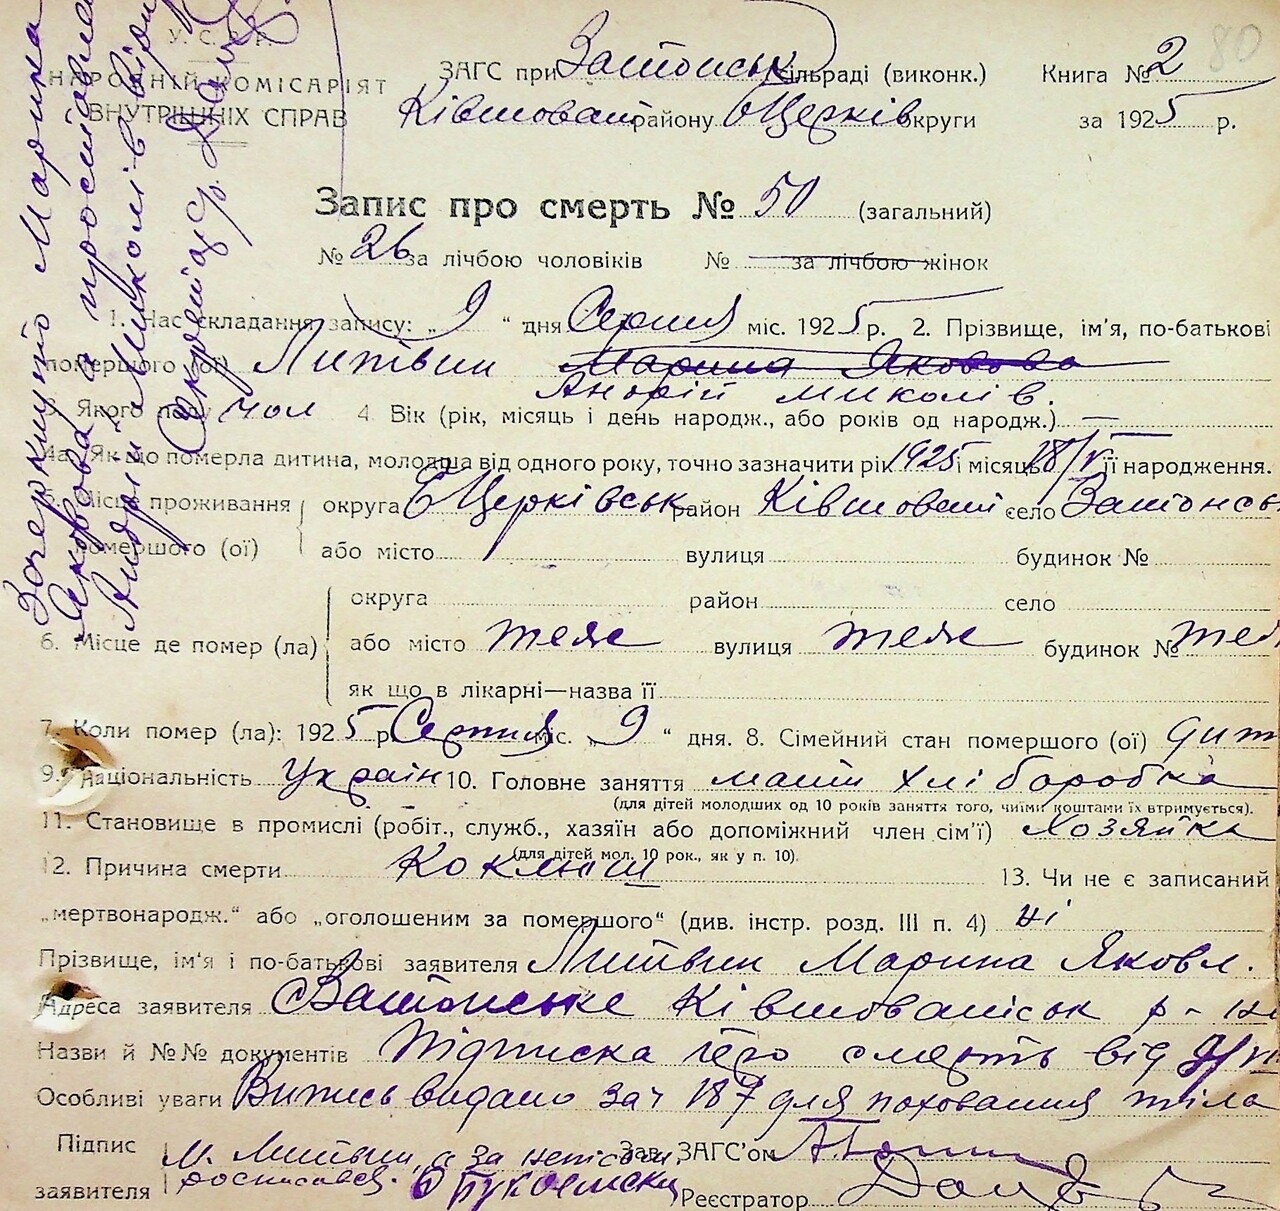 80
У.С.Р.Р.
НАРОДНІЙ КОМІСАРІЯТ
ВНУТРІШНІХ СПРАВ
ЗАГС при Затонськ сільраді (виконк.) Книга № 2
Ківшоват району БЦерків округи за 1925 р.
Запис про смерть № 50 (загальний)
№ 26 за лічбою чоловіків № за лічбою жінок
1. Час складання запису: „9“ дня Серпня міс. 1925 р. 2. Прізвище, ім'я, по-батькові
померлого (ої) Литвин Марина Яковова
Андрій Миколів.
3. Якого полу чол 4. Вік (рік, місяць і день народж., або років од народж.) —
4а. Як що померла дитина, молодша від одного року, точно зазначити рік 1925 і місяць 18/V її народження.
5. Місце проживання помершого (ої) округа БЦерківськ район Ківшоват село Затонськ
або місто вулиця будинок №
6. Місце де помер (ла) округа район село
або місто теж вулиця теж будинок № теж
як що в лікарні—назва її
7. Коли помер (ла): 1925 р. Серпня міс. „9“ дня. 8. Сімейний стан помершого (ої) дит
9. Національність Україн 10. Головне заняття мати хліборобка
(для дітей молодших од 10 років заняття того, чиїми коштами їх втримується).
11. Становище в промислі (робіт., служб., хазяїн або допоміжний член сім'ї) Хозяйка
(для дітей мол. 10 рок., як у п. 10).
12. Причина смерти Коклюш 13. Чи не є записаний
„мертвонародж.“ або „оголошеним за помершого“ (див. інстр. розд. III п. 4) ні
Прізвище, ім'я і по-батькові заявителя Литвин Марина Яковл.
Адреса заявителя Затонське Ківшоватськ р-ну
Назви й №№ документів Підписка його смерть від 9/VIII
Особливі уваги Випись видано за ч 187 для поховання тіла
Підпис заявителя М. Литвин, а за неписьм. росписавсь. Зав. ЗАГС'ом
Реєстратор
Зачеркнуто Марина
Яковова а проставлено
Андрій Миколів вірно
Секретар